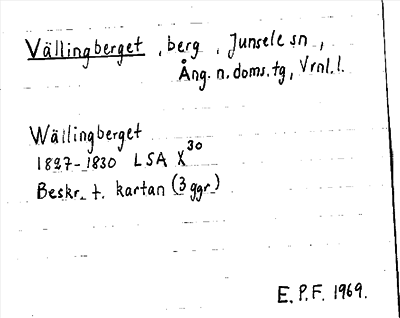 Vällingberget, berg, Junsele sn,
Ång. n. doms.tg, Vrnl.l.
Wällingberget
1827-1830 LSA X30
Beskr. t. kartan (3 ggr)
E.P.F. 1969.